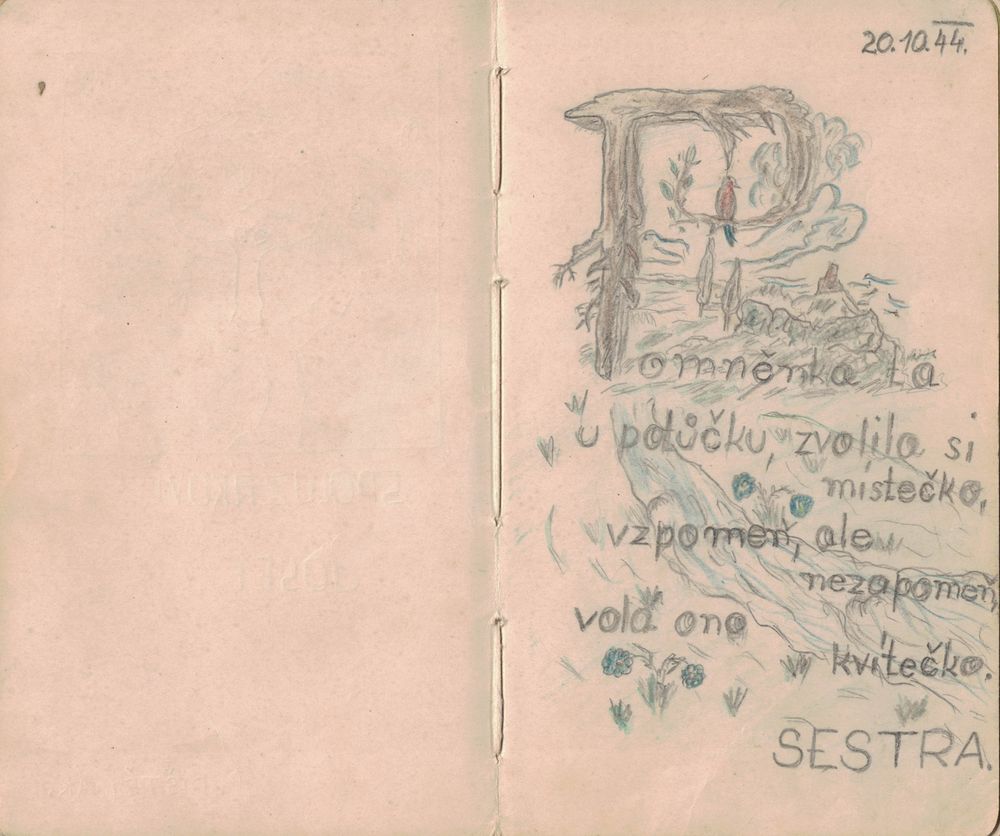 20.10.44.
Pomněnka ta
u potůčku, zvolila si
místečko,
vzpomeň, ale
nezapomeň,
volá ono
kvítečko.
SESTRA.